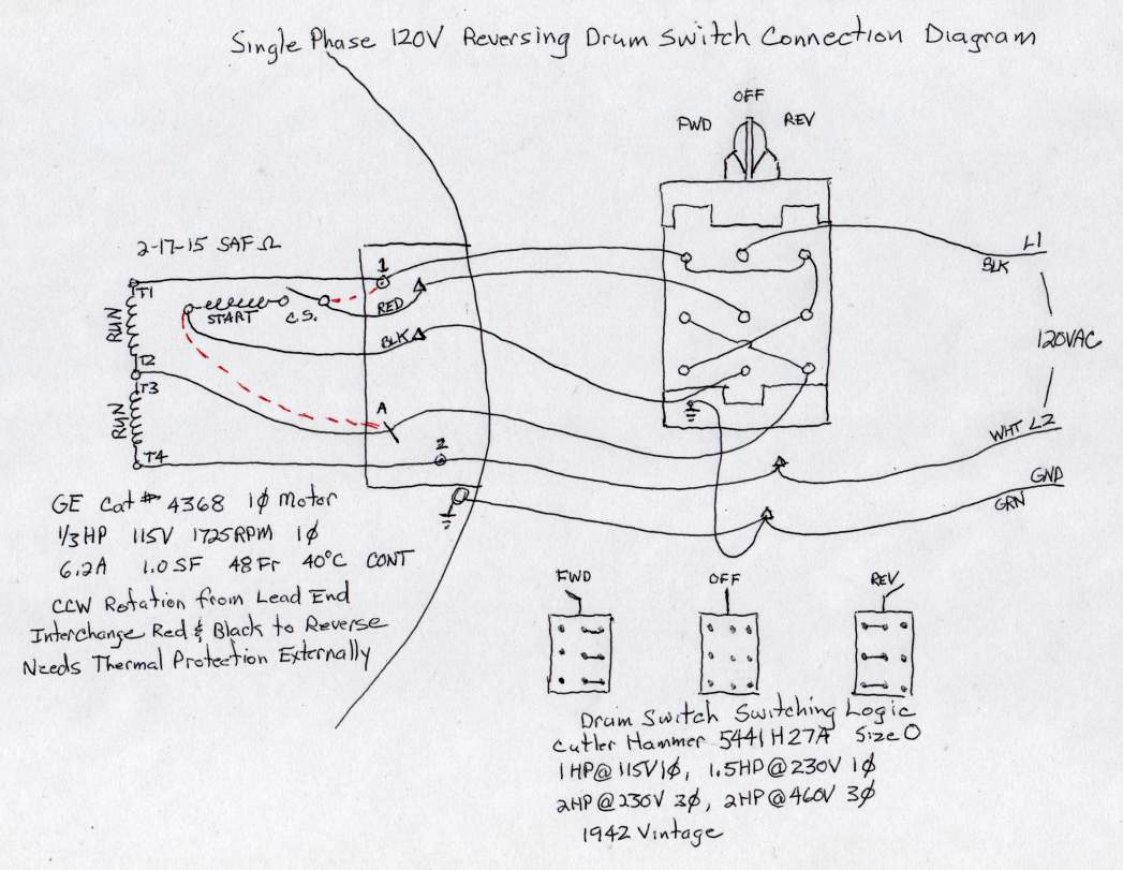 Single Phase 120V Reversing Drum Switch Connection Diagram
OFF
FWD
REV
2-17-15 SAF Ω
L1
BLK
1
T1
RED
START
C.S.
RUN
BLK
120VAC
T2
T3
A
RUN
2
WHT L2
T4
GND
GRN
GE Cat# 4368 1ϕ Motor
1/3 HP 115V 1725RPM 1ϕ
6.2A 1.0 SF 48 Fr 40°C CONT
CCW Rotation from Lead End
Interchange Red & Black to Reverse
Needs Thermal Protection Externally
FWD
OFF
REV
Drum Switch Switching Logic
Cutler Hammer 5441 H27A Size 0
1HP@115V1ϕ, 1.5HP@230V 1ϕ
2HP@230V 3ϕ, 2HP@460V 3ϕ
1942 Vintage